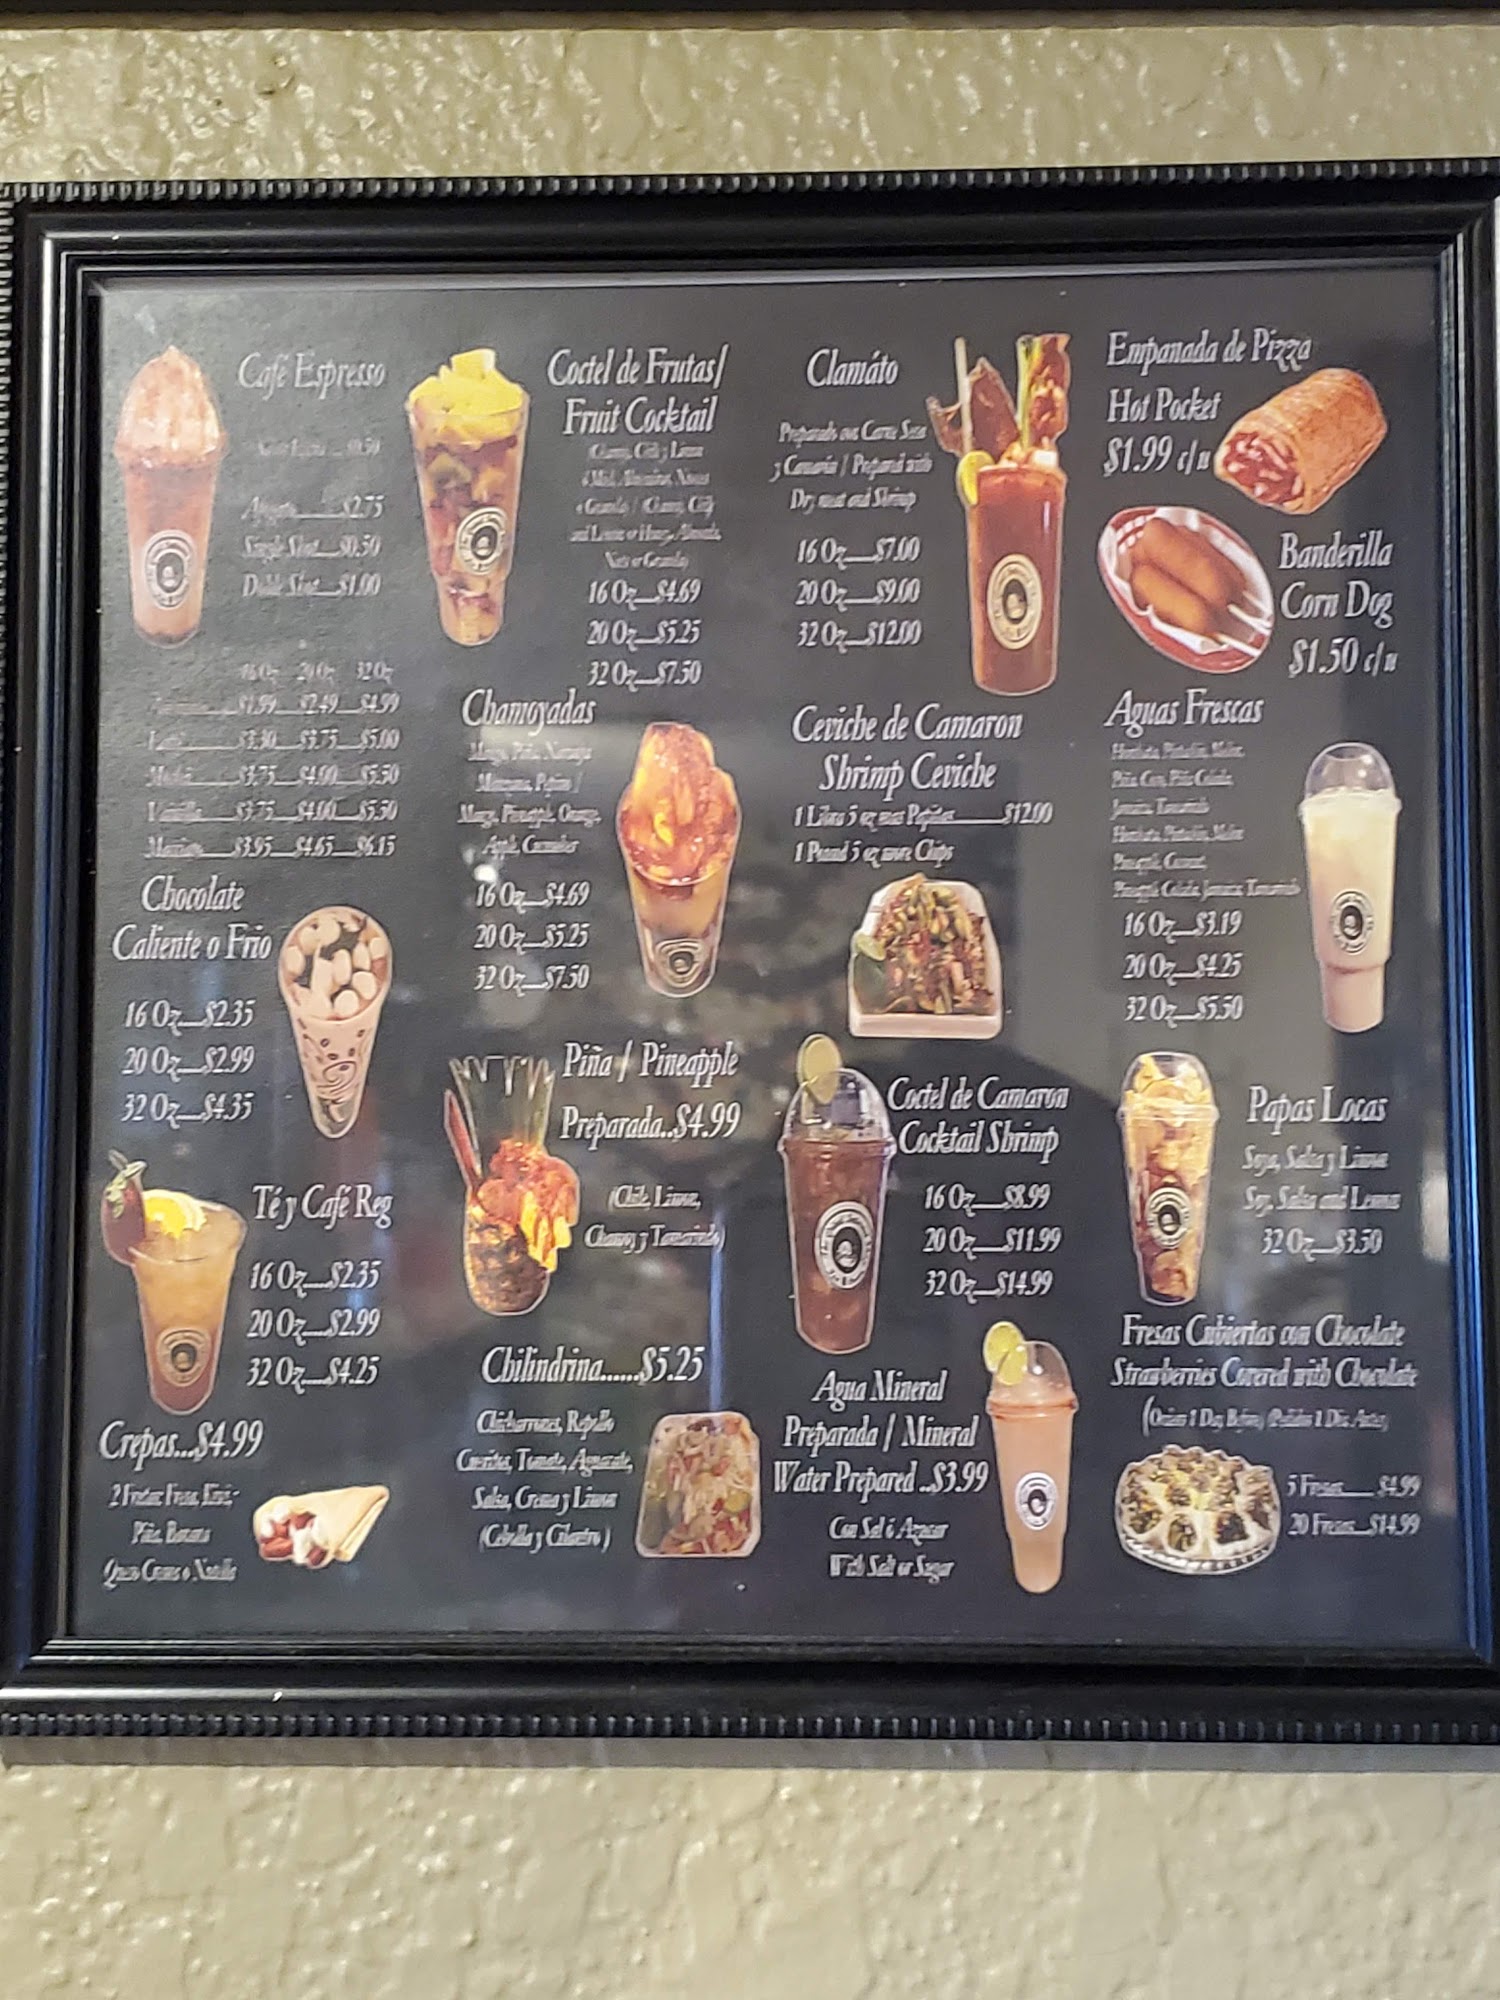 Café Espresso
$0.50
$2.75
Single Shot $0.50
Doble Shot $1.00
16 Oz 20 Oz 32 Oz
$1.99 $2.49 $4.99
$3.30 $3.75 $5.00
$3.75 $4.00 $5.50
Vainilla $3.75 $4.00 $5.50
$3.95 $4.65 $6.15
Chocolate
Caliente o Frio
16 Oz $2.35
20 Oz $2.99
32 Oz $4.35
Té y Café Reg
16 Oz $2.35
20 Oz $2.99
32 Oz $4.25
Crepas...$4.99
2 Frutas: Fresa, Kiwi,
Piña, Banana
Queso Crema o Nutella
Coctel de Frutas/
Fruit Cocktail
16 Oz $4.69
20 Oz $5.25
32 Oz $7.50
Chamoyadas
Mango, Piña, Naranja
Manzana, Pepino /
Mango, Pineapple, Orange,
Apple, Cucumber
16 Oz $4.69
20 Oz $5.25
32 Oz $7.50
Piña / Pineapple
Preparada..$4.99
(Chile, Limon,
Chamoy y Tamarindo)
Chilindrina......$5.25
Chicharrones, Repollo
Cueritos, Tomate, Aguacate,
Salsa, Crema y Limon
(Cebolla y Cilantro)
Clamáto
Preparado con Carne Seca
y Camarón / Prepared with
Dry meat and Shrimp
16 Oz $7.00
20 Oz $9.00
32 Oz $12.00
Ceviche de Camaron
Shrimp Ceviche
1 Libra 5 oz mas Papitas $12.00
1 Pound 5 oz more Chips
Coctel de Camaron
Cocktail Shrimp
16 Oz $8.99
20 Oz $11.99
32 Oz $14.99
Agua Mineral
Preparada / Mineral
Water Prepared ..$3.99
Con Sal ó Azucar
With Salt or Sugar
Empanada de Pizza
Hot Pocket
$1.99 c/u
Banderilla
Corn Dog
$1.50 c/u
Aguas Frescas
16 Oz $3.19
20 Oz $4.25
32 Oz $5.50
Papas Locas
Soya, Salsa y Limon
Soy, Salsa and Lemon
32 Oz $3.50
Fresas Cubiertas con Chocolate
Strawberries Covered with Chocolate
(Orders 1 Day Before) (Pedidos 1 Dia Antes)
5 Fresas $4.99
20 Fresas $14.99